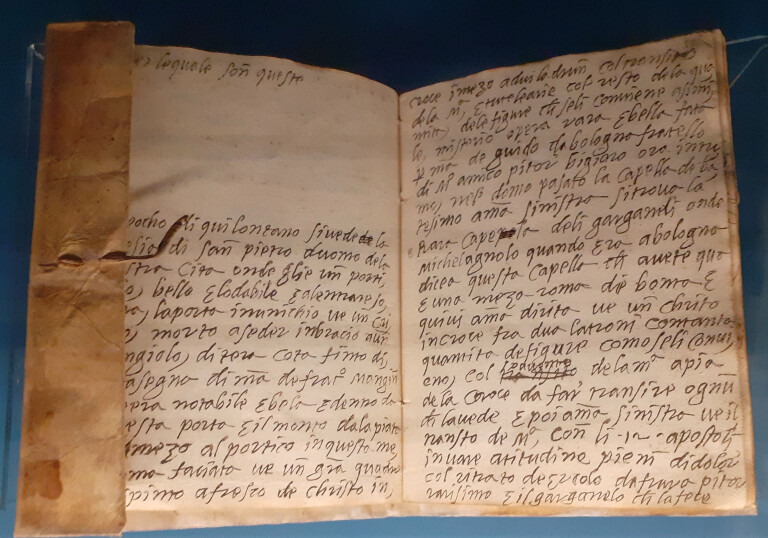 lequale son questa
pocho di qui lontano si vede la
di san pietro duomo dela
stra Cita onde glie un porti,
bello Elodabile Ealentrare so,
laporta inunichio ve un
morto aseder inbracio aun
ngiolo, di tera Cota fimo di,
asegna di mā de frat.
notabile Ebela Edenno da
esta porta Eilmonto dala
mezo al portico in questo me,
faciata ve un grā quadro
pinto afresco de christo in,
croce imezo adui ladrun, col transito
dela M, Eturelarie col resto dela qua
mita, dele figure ch seli conviene asim,
le, misterio opera rara Ebella fata
p mā de guido da bologna fratello
di M amico pitor bigiaro ora intro
mo, nel domo pasato la Capella de ba
tesimo amā sinistra si trova la
rara Capela deli garganeli onde
Michelagnolo quando Era abologna
dicea questa Capella ch avete qua
E una meza roma di bonta E
quivi amā dirita ve un Christo
in croce fra dua latroni contanta
quamita de figure como seli convi,
eno, col dela M apie
dela Croce da far transire ognū
ch lavede E poi amā sinistra ve il
transto de M, con li .12. apostoli
in varie atitudine pieni di dolor
col ritrato de Ercole da fivara pitor
rarisimo E il garganelo ch la fece